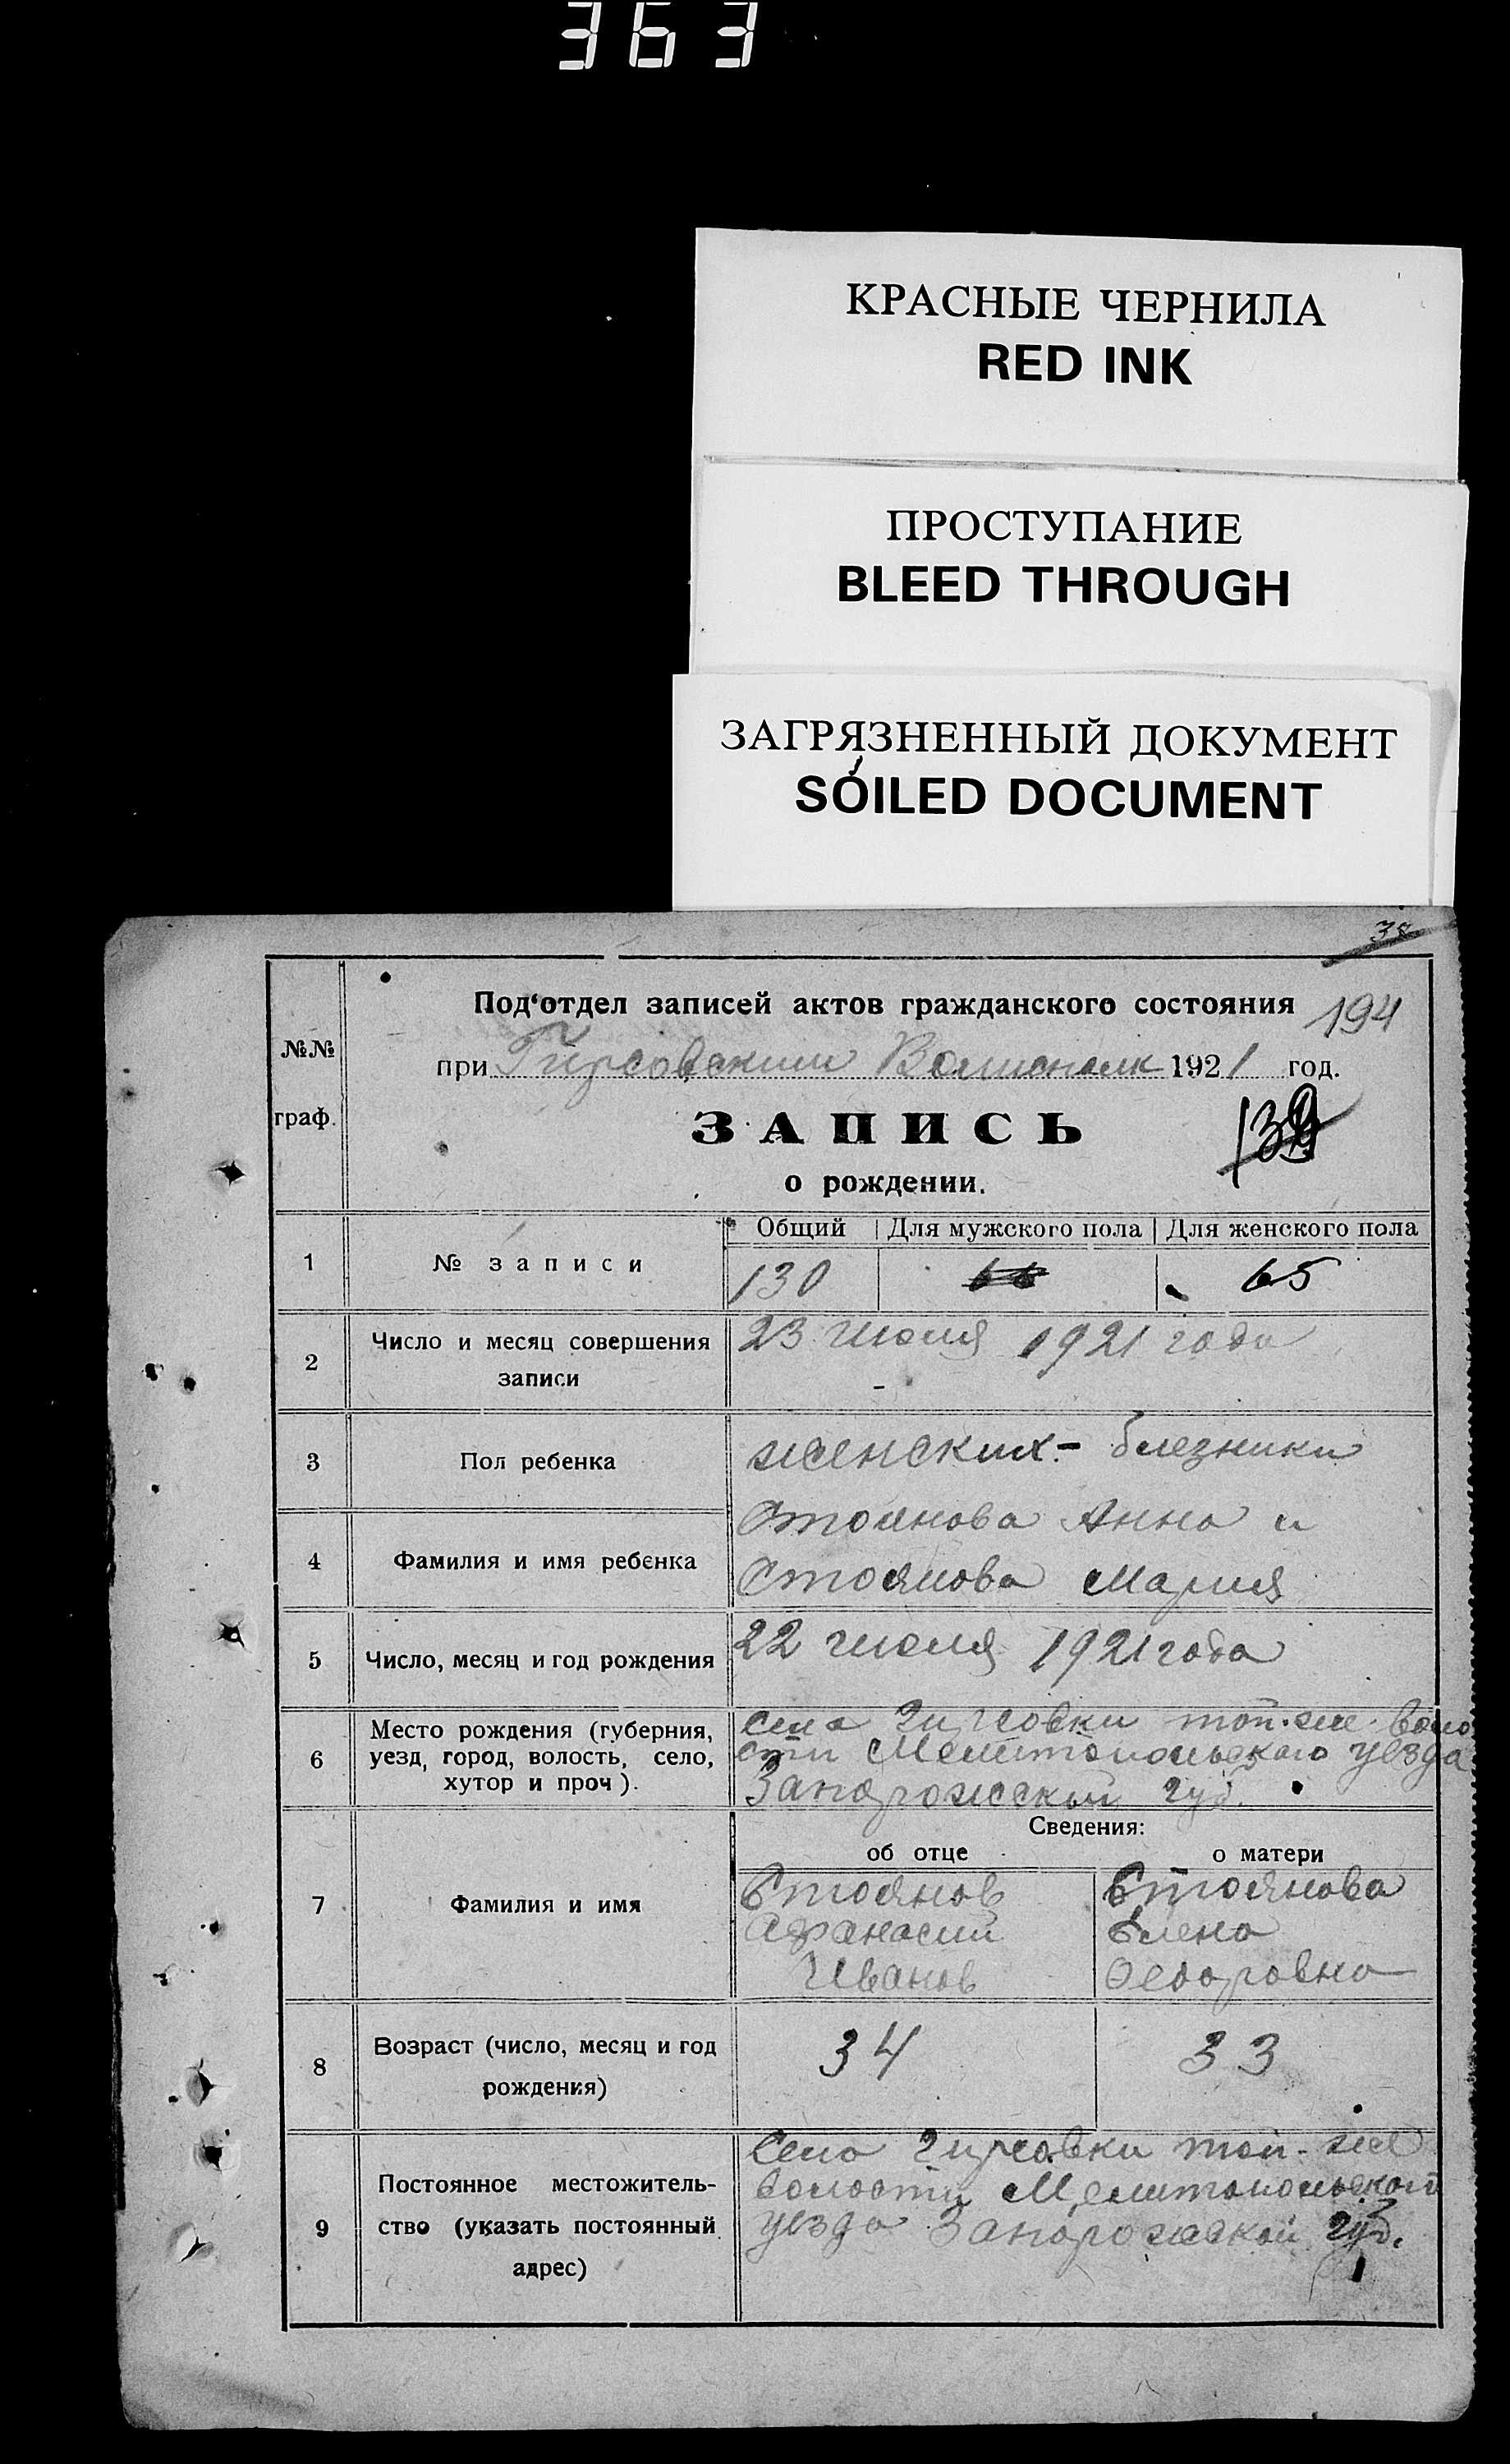 363
КРАСНЫЕ ЧЕРНИЛА
RED INK
ПРОСТУПАНИЕ
BLEED THROUGH
ЗАГРЯЗНЕННЫЙ ДОКУМЕНТ
SOILED DOCUMENT
38
№№
граф.
Под'отдел записей актов гражданского состояния
194
при Гирсовским Волисполк 1921 год.
ЗАПИСЬ
о рождении.
Общий Для мужского пола Для женского пола
1 № записи 130 66 65
2 Число и месяц совершения записи
23 июля 1921 года
3 Пол ребенка
женских - близники
4 Фамилия и имя ребенка
Стоянова Анна и
Стоянова Мария
5 Число, месяц и год рождения
22 июля 1921 года
6 Место рождения (губерния,
уезд, город, волость, село,
хутор и проч).
села Гирсовки той-же воло
сти Мелитопольского уезда
Запорожской губ.
Сведения:
об отце о матери
7 Фамилия и имя
Стоянов
Афанасий
Иванов
Стоянова
Елена
Федоровна
8 Возраст (число, месяц и год
рождения)
34 33
9 Постоянное местожитель-
ство (указать постоянный
адрес)
Село Гирсовки той-же
волости Мелитопольского
уезда Запорожской губ.